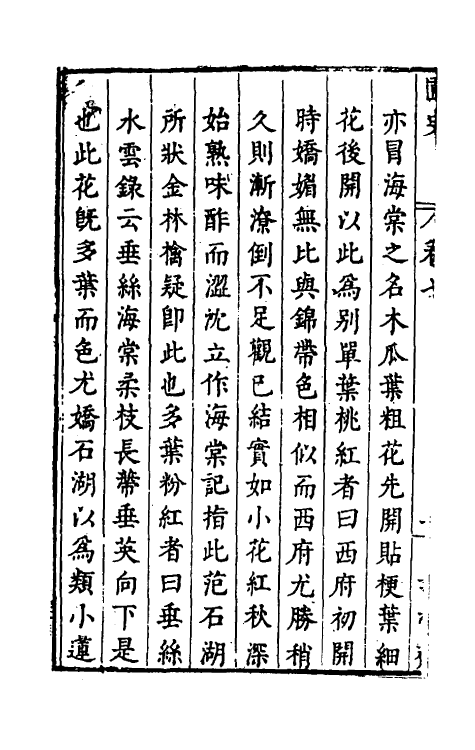 亦冒海棠之名木瓜葉粗花先開貼梗葉細
花後開以此為別單葉桃紅者曰西府初開
時嬌媚無比與錦帶色相似而西府尤勝稍
久則漸潦倒不足觀已結實如小花紅秋深
始熟味酢而澀沈立作海棠記指此范石湖
所狀金林檎疑即此也多葉粉紅者曰垂絲
水雲錄云垂絲海棠柔枝長蔕垂英向下是
也此花既多葉而色尤嬌石湖以為類小蓮